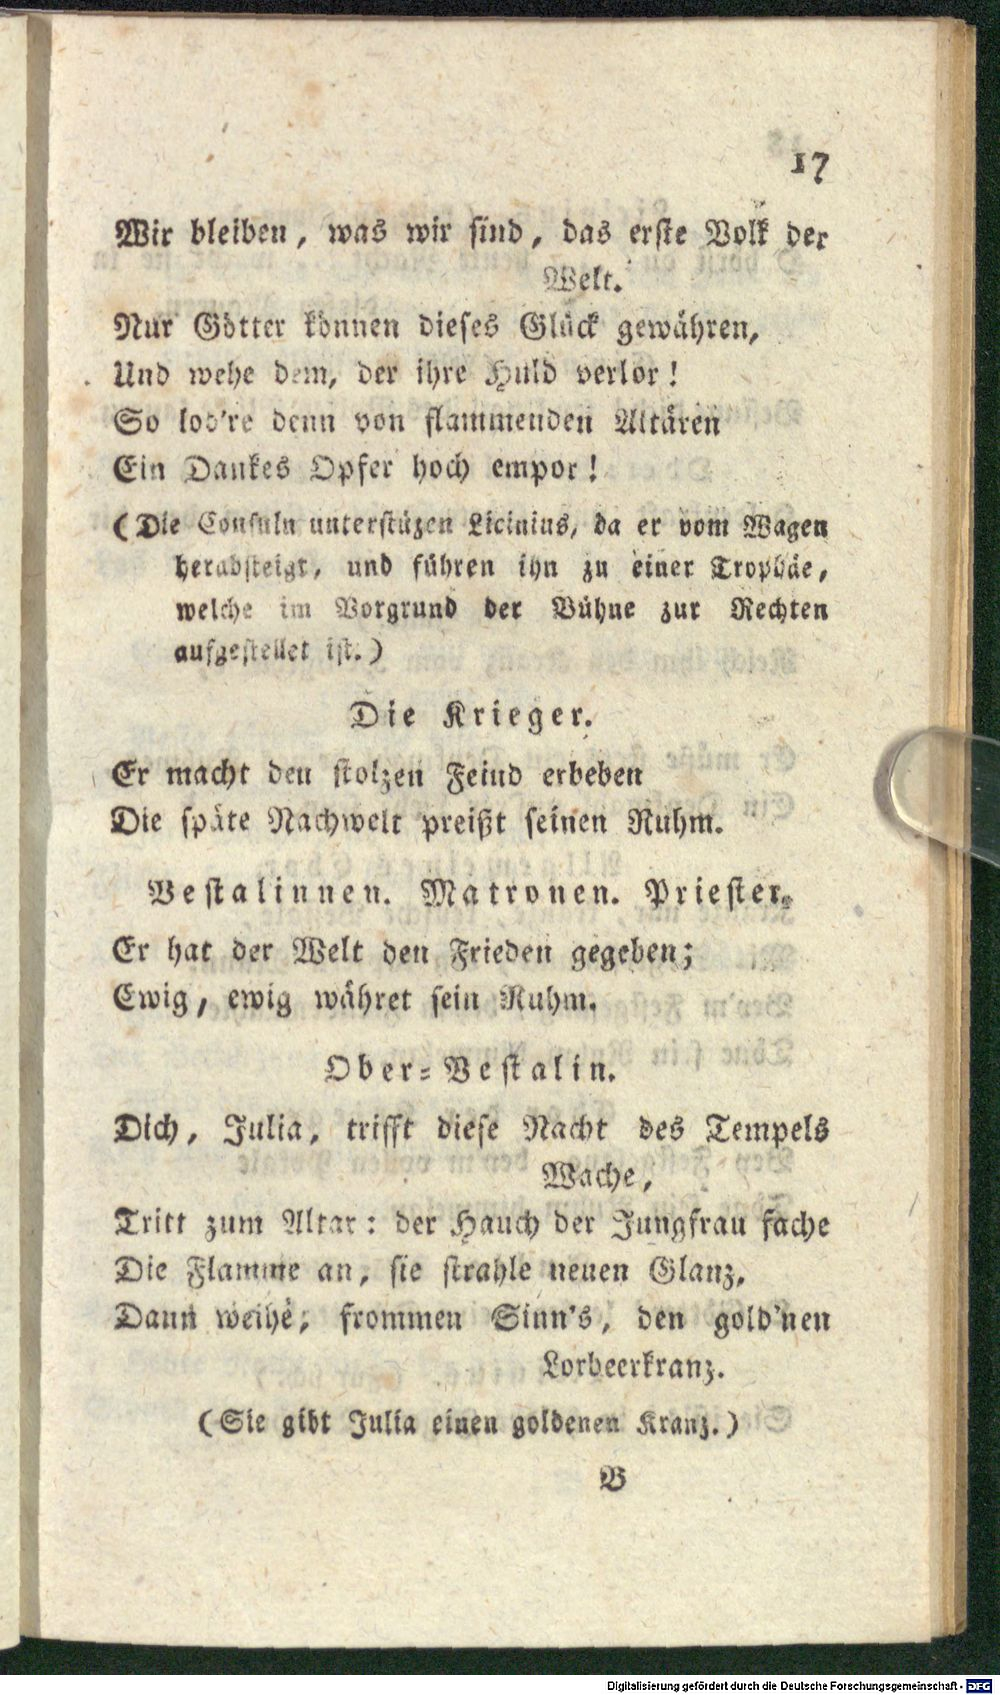 17
Wir bleiben, was wir sind, das erste Volk der
Welt.
Nur Götter können dieses Glück gewähren,
Und wehe dem, der ihre Huld verlor!
So lod're denn von flammenden Altären
Ein Dankes Opfer hoch empor!
(Die Consuln unterstüzen Licinius, da er vom Wagen
herabsteigt, und führen ihn zu einer Trophäe,
welche im Vorgrund der Bühne zur Rechten
aufgestellet ist.)
Die Krieger.
Er macht den stolzen Feind erbeben
Die späte Nachwelt preißt seinen Ruhm.
Vestalinnen. Matronen. Priester.
Er hat der Welt den Frieden gegeben;
Ewig, ewig währet sein Ruhm.
Ober-Vestalin.
Dich, Julia, trifft diese Nacht des Tempels
Wache,
Tritt zum Altar: der Hauch der Jungfrau fache
Die Flamme an, sie strahle neuen Glanz,
Dann weihe, frommen Sinn's, den gold'nen
Lorbeerkranz.
(Sie gibt Julia einen goldenen Kranz.)
B
Digitalisierung gefördert durch die Deutsche Forschungsgemeinschaft - DFG